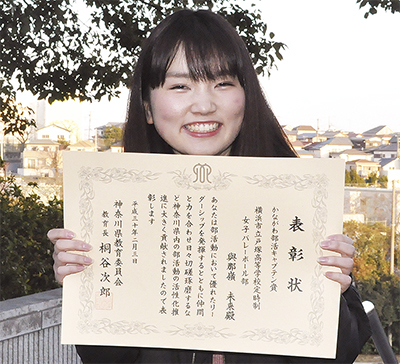 表彰状
かながわ部活キャプテン賞
横浜市立戸塚高等学校定時制
女子バレーボール部
與那嶺 未来殿
あなたは部活動において優れたリー
ダーシップを発揮するとともに仲間
と力を合わせ日々切磋琢磨するな
ど神奈川県内の部活動の活性化推
進に大きく貢献されましたので表
彰します
平成三十年二月三日
神奈川県教育委員会
教育長 桐谷次郎